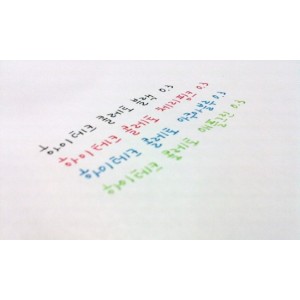 하이테크 콜레토 블랙 0.3
하이테크 콜레토 체리핑크 0.3
하이테크 콜레토 아쿠아블루 0.3
하이테크 콜레토 애플그린 0.3